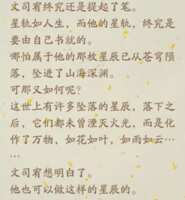 文司有终究还是提起了笔。
星轨如人生，而他的星轨，终究是
要由自己书就的。
哪怕属于他的那枚星辰已从苍穹陨
落，坠进了山海深渊。
可那又如何呢？
这世上有许多坠落的星辰，落下之
后，它们都未曾湮灭火光，而是化
作了万物，如花如叶，如雨如云⋯
⋯
文司有想明白了。
他也可以做这样的星辰的。